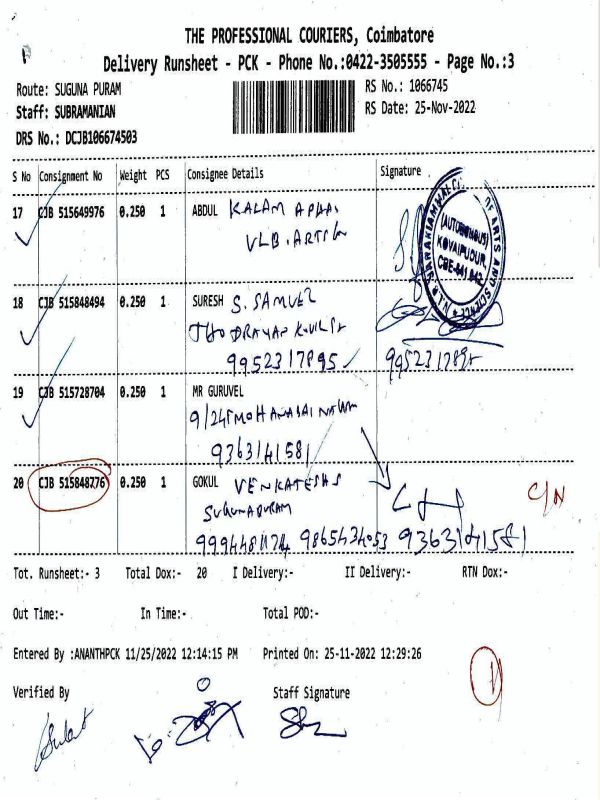 THE PROFESSIONAL COURIERS, Coimbatore
Delivery Runsheet - PCK - Phone No.:0422-3505555 - Page No.:3
Route: SUGUNA PURAM
RS No.: 1066745
Staff: SUBRAMANIAN
RS Date: 25-Nov-2022
DRS No.: DCJB106674503
S No Consignment No Weight PCS Consignee Details Signature
17 CJB 515649976 0.250 1 ABDUL KALAM
VLB. ARTS
(AUTONOMOUS)
KOVAIPUDUR,
CBE-641 042
18 CJB 515848494 0.250 1 SURESH S. SAMUEL
9952317895
19 CJB 515728704 0.250 1 MR GURUVEL
9363141581
20 CJB 515848776 0.250 1 GOKUL VENKATESH S
SUGUNAPURAM
9865434053 9363141581
Tot. Runsheet:- 3 Total Dox:- 20 I Delivery:- II Delivery:- RTN Dox:-
Out Time:- In Time:- Total POD:-
Entered By :ANANTHPCK 11/25/2022 12:14:15 PM Printed On: 25-11-2022 12:29:26
Verified By Staff Signature